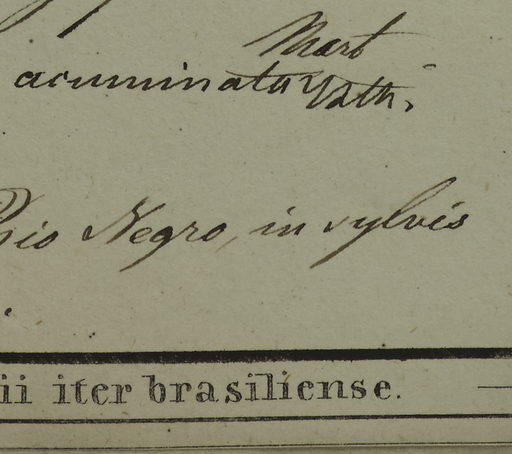 Mart
acuminata
Rio Negro, in sylvis
ii iter brasiliense.